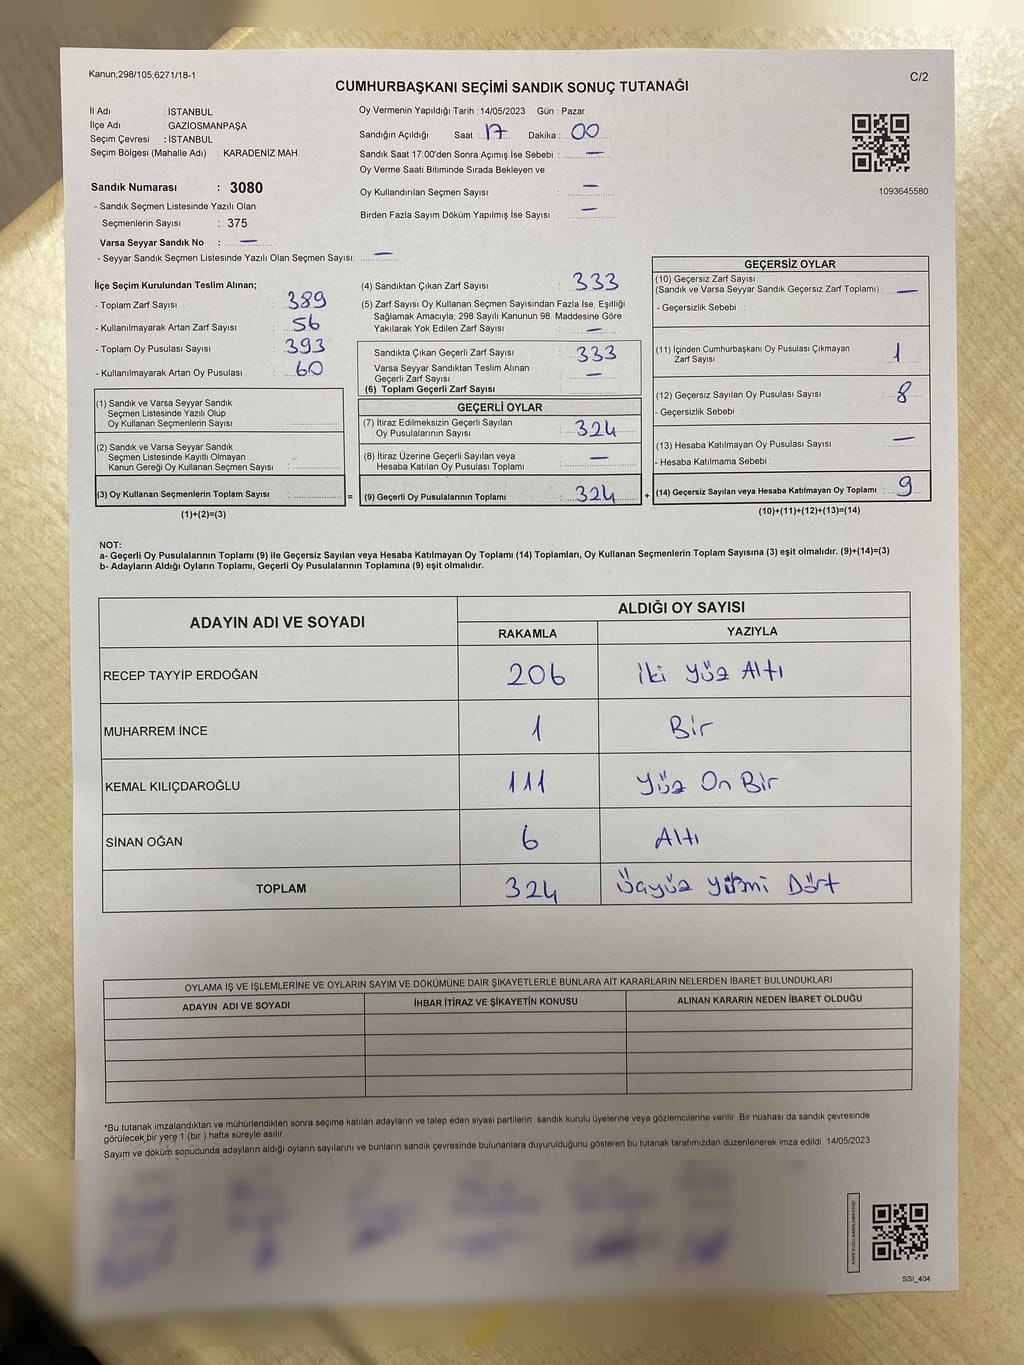 Kanun,298/105,6271/18-1
C/2
CUMHURBAŞKANI SEÇİMİ SANDIK SONUÇ TUTANAĞI
İl Adı : İSTANBUL
İlçe Adı : GAZİOSMANPAŞA
Seçim Çevresi : İSTANBUL
Seçim Bölgesi (Mahalle Adı) : KARADENİZ MAH.
Sandık Numarası : 3080
- Sandık Seçmen Listesinde Yazılı Olan
Seçmenlerin Sayısı : 375
Varsa Seyyar Sandık No : —
- Seyyar Sandık Seçmen Listesinde Yazılı Olan Seçmen Sayısı: —
Oy Vermenin Yapıldığı Tarih : 14/05/2023 Gün : Pazar
Sandığın Açıldığı Saat : 17 Dakika : 00
Sandık Saat 17:00'den Sonra Açımış İse Sebebi : —
Oy Verme Saati Bitiminde Sırada Bekleyen ve
Oy Kullandırılan Seçmen Sayısı : —
Birden Fazla Sayım Döküm Yapılmış İse Sayısı : —
1093645580
İlçe Seçim Kurulundan Teslim Alınan;
- Toplam Zarf Sayısı : 389
- Kullanılmayarak Artan Zarf Sayısı : 56
- Toplam Oy Pusulası Sayısı : 393
- Kullanılmayarak Artan Oy Pusulası : 60
(1) Sandık ve Varsa Seyyar Sandık
Seçmen Listesinde Yazılı Olup
Oy Kullanan Seçmenlerin Sayısı :
(2) Sandık ve Varsa Seyyar Sandık
Seçmen Listesinde Kayıtlı Olmayan
Kanun Gereği Oy Kullanan Seçmen Sayısı :
(3) Oy Kullanan Seçmenlerin Toplam Sayısı : =
(1)+(2)=(3)
(4) Sandıktan Çıkan Zarf Sayısı : 333
(5) Zarf Sayısı Oy Kullanan Seçmen Sayısından Fazla İse, Eşitliği
Sağlamak Amacıyla; 298 Sayılı Kanunun 98. Maddesine Göre
Yakılarak Yok Edilen Zarf Sayısı : —
Sandıkta Çıkan Geçerli Zarf Sayısı : 333
Varsa Seyyar Sandıktan Teslim Alınan
Geçerli Zarf Sayısı : —
(6) Toplam Geçerli Zarf Sayısı :
GEÇERLİ OYLAR
(7) İtiraz Edilmeksizin Geçerli Sayılan
Oy Pusulalarının Sayısı : 324
(8) İtiraz Üzerine Geçerli Sayılan veya
Hesaba Katılan Oy Pusulası Toplamı : —
(9) Geçerli Oy Pusulalarının Toplamı : 324 +
GEÇERSİZ OYLAR
(10) Geçersiz Zarf Sayısı
(Sandık ve Varsa Seyyar Sandık Geçersiz Zarf Toplamı) : —
- Geçersizlik Sebebi :
(11) İçinden Cumhurbaşkanı Oy Pusulası Çıkmayan
Zarf Sayısı : 1
(12) Geçersiz Sayılan Oy Pusulası Sayısı : 8
- Geçersizlik Sebebi :
(13) Hesaba Katılmayan Oy Pusulası Sayısı : —
- Hesaba Katılmama Sebebi :
(14) Geçersiz Sayılan veya Hesaba Katılmayan Oy Toplamı : 9
(10)+(11)+(12)+(13)=(14)
NOT:
a- Geçerli Oy Pusulalarının Toplamı (9) ile Geçersiz Sayılan veya Hesaba Katılmayan Oy Toplamı (14) Toplamları, Oy Kullanan Seçmenlerin Toplam Sayısına (3) eşit olmalıdır. (9)+(14)=(3)
b- Adayların Aldığı Oyların Toplamı, Geçerli Oy Pusulalarının Toplamına (9) eşit olmalıdır.
ADAYIN ADI VE SOYADI ALDIĞI OY SAYISI
RAKAMLA YAZIYLA
RECEP TAYYİP ERDOĞAN 206 iki yüz Altı
MUHARREM İNCE 1 Bir
KEMAL KILIÇDAROĞLU 111 Yüz On Bir
SİNAN OĞAN 6 Altı
TOPLAM 324 Üçyüz yirmi Dört
OYLAMA İŞ VE İŞLEMLERİNE VE OYLARIN SAYIM VE DÖKÜMÜNE DAİR ŞİKAYETLERLE BUNLARA AİT KARARLARIN NELERDEN İBARET BULUNDUKLARI
ADAYIN ADI VE SOYADI İHBAR İTİRAZ VE ŞİKAYETİN KONUSU ALINAN KARARIN NEDEN İBARET OLDUĞU
*Bu tutanak imzalandıktan ve mühürlendikten sonra seçime katılan adayların ve talep eden siyasi partilerin sandık kurulu üyelerine veya gözlemcilerine verilir. Bir nüshası da sandık çevresinde
görülecek bir yere 1 (bir ) hafta süreyle asılır.
Sayım ve döküm sonucunda adayların aldığı oyların sayılarını ve bunların sandık çevresinde bulunanlara duyurulduğunu gösteren bu tutanak tarafımızdan düzenlenerek imza edildi. 14/05/2023
SSI_404